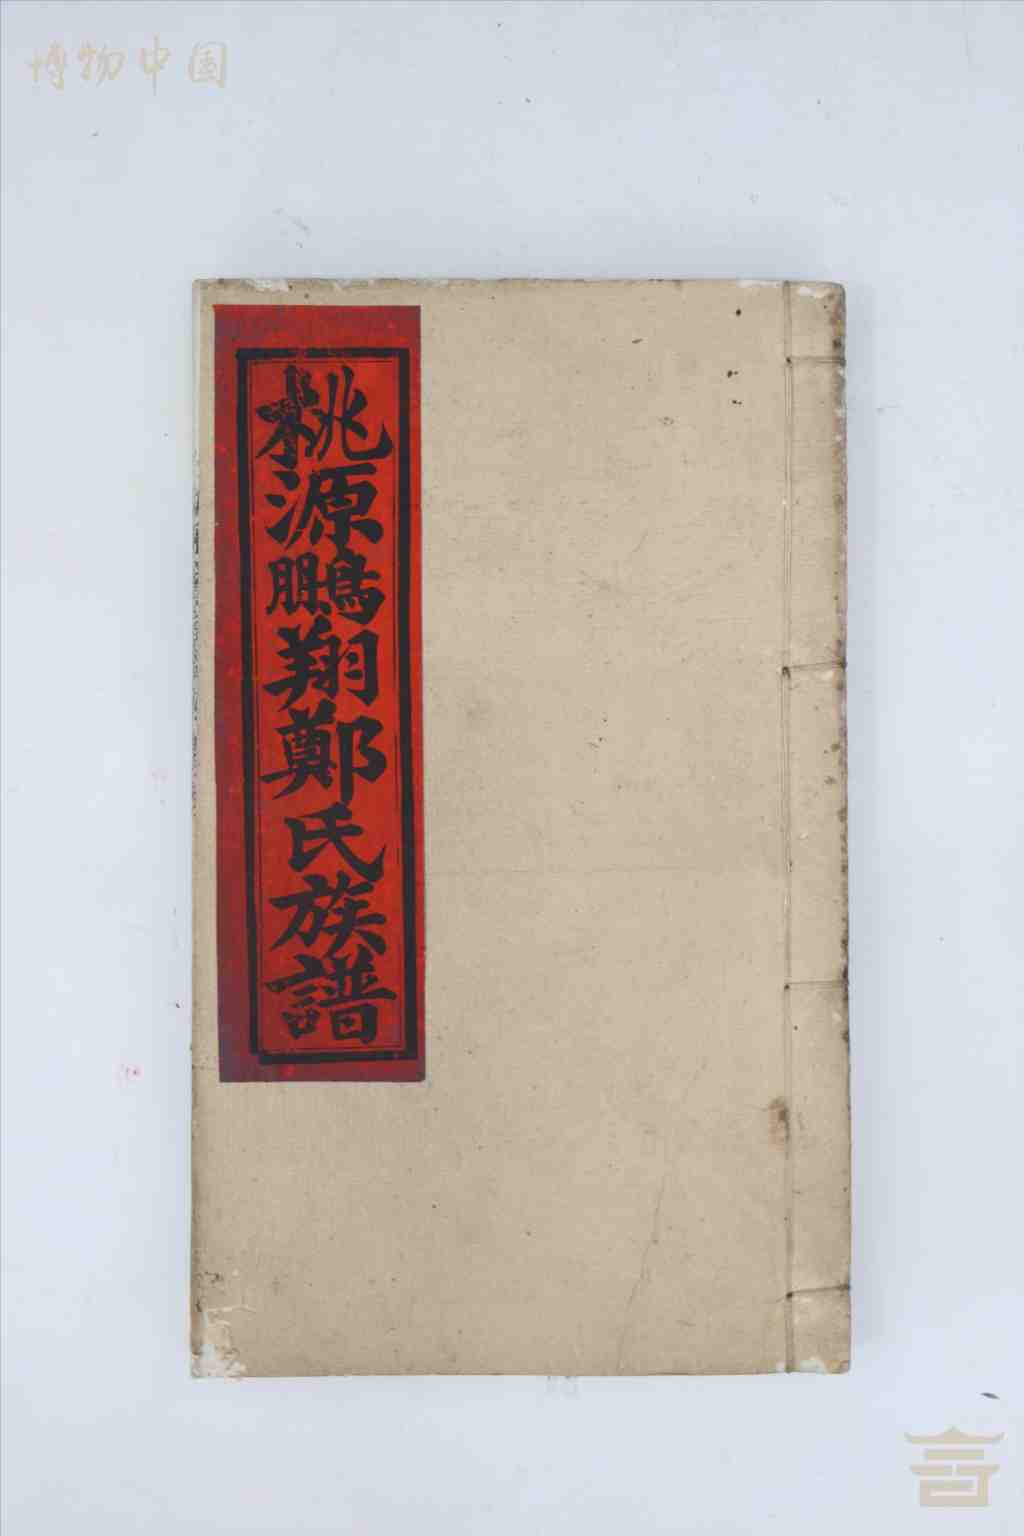 博物中国
桃源鵬翔鄭氏族譜